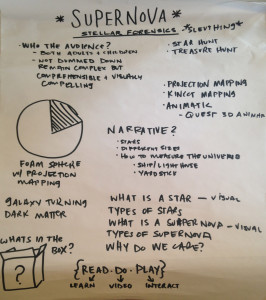 * SUPERNOVA *
STELLAR FORENSICS * SLEUTHING *
• WHO THE AUDIENCE?
- BOTH ADULTS + CHILDREN
• NOT DUMMED DOWN
REMAIN COMPLEX BUT
COMPREHENSIBLE + VISUALLY
COMPELLING
• STAR HUNT
• TREASURE HUNT
• PROJECTION MAPPING
• KINECT MAPPING
• ANIMATIC
- QUEST 3D
FOAM SPHERE
W/ PROJECTION
MAPPING
NARRATIVE?
• STARS
• DIFFERENT SIZES
• HOW TO MEASURE THE UNIVERSE
• SHIP/LIGHTHOUSE
• YARDSTICK
GALAXY TURNING
DARK MATTER
WHAT IS A STAR - VISUAL
TYPES OF STARS
WHAT IS A SUPERNOVA - VISUAL
TYPES OF SUPERNOVA
WHY DO WE CARE?
WHATS IN THE
BOX?
?
{READ · DO · PLAY}
LEARN VIDEO INTERACT